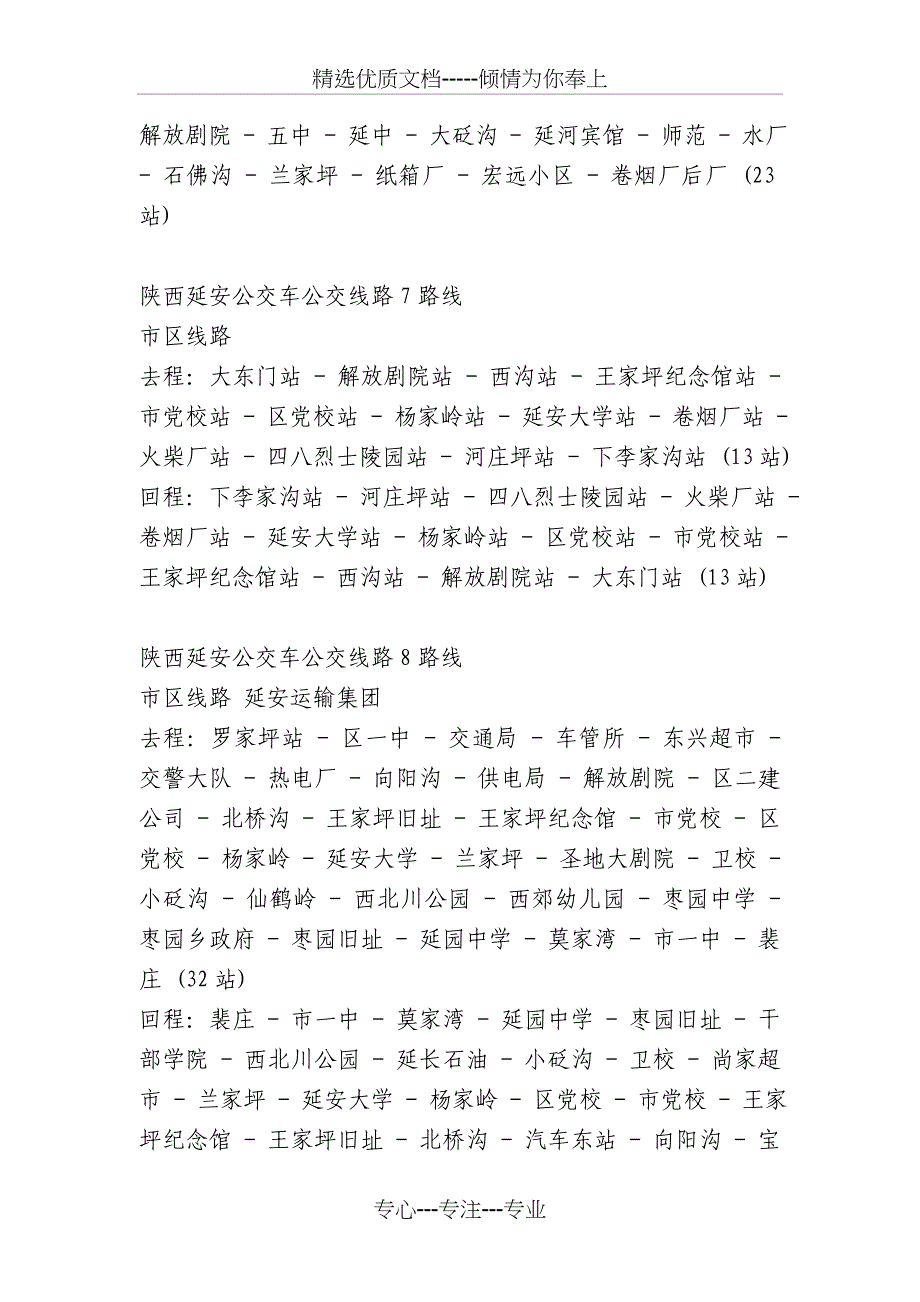 精选优质文档-----倾情为你奉上
解放剧院 - 五中 - 延中 - 大砭沟 - 延河宾馆 - 师范 - 水厂
- 石佛沟 - 兰家坪 - 纸箱厂 - 宏远小区 - 卷烟厂后厂 (23
站)
陕西延安公交车公交线路7路线
市区线路
去程: 大东门站 - 解放剧院站 - 西沟站 - 王家坪纪念馆站 -
市党校站 - 区党校站 - 杨家岭站 - 延安大学站 - 卷烟厂站 -
火柴厂站 - 四八烈士陵园站 - 河庄坪站 - 下李家沟站 (13站)
回程: 下李家沟站 - 河庄坪站 - 四八烈士陵园站 - 火柴厂站 -
卷烟厂站 - 延安大学站 - 杨家岭站 - 区党校站 - 市党校站 -
王家坪纪念馆站 - 西沟站 - 解放剧院站 - 大东门站 (13站)
陕西延安公交车公交线路8路线
市区线路 延安运输集团
去程: 罗家坪站 - 区一中 - 交通局 - 车管所 - 东兴超市 -
交警大队 - 热电厂 - 向阳沟 - 供电局 - 解放剧院 - 区二建
公司 - 北桥沟 - 王家坪旧址 - 王家坪纪念馆 - 市党校 - 区
党校 - 杨家岭 - 延安大学 - 兰家坪 - 圣地大剧院 - 卫校 -
小砭沟 - 仙鹤岭 - 西北川公园 - 西郊幼儿园 - 枣园中学 -
枣园乡政府 - 枣园旧址 - 延园中学 - 莫家湾 - 市一中 - 裴
庄 (32站)
回程: 裴庄 - 市一中 - 莫家湾 - 延园中学 - 枣园旧址 - 干
部学院 - 西北川公园 - 延长石油 - 小砭沟 - 卫校 - 尚家超
市 - 兰家坪 - 延安大学 - 杨家岭 - 区党校 - 市党校 - 王家
坪纪念馆 - 王家坪旧址 - 北桥沟 - 汽车东站 - 向阳沟 - 宝
专心---专注---专业